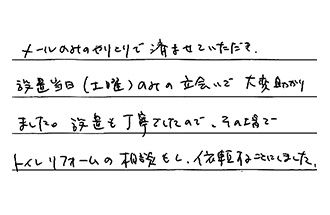 メールのみのやりとりで済ませていただき、
設置当日(土曜)のみの立会いで大変助かり
ました。設置も丁寧でしたので、その場で
トイレリフォームの相談もし、依頼することにしました。